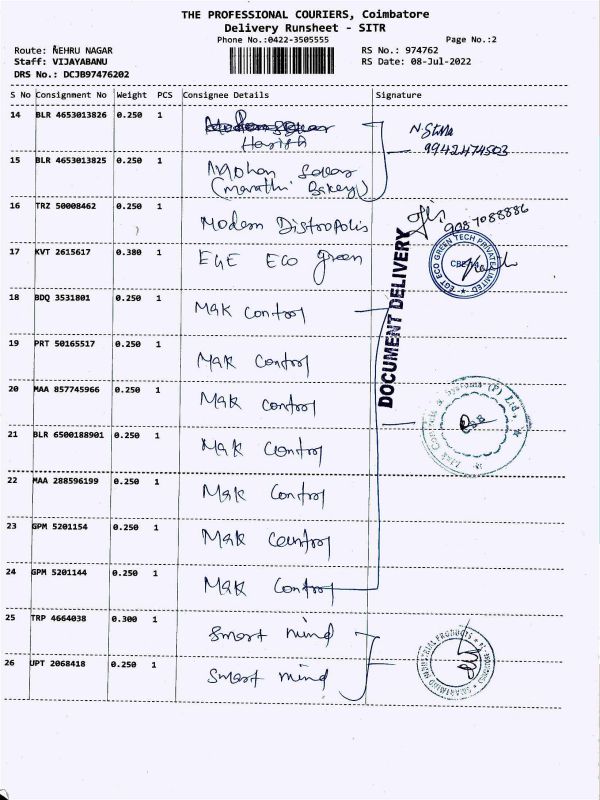 THE PROFESSIONAL COURIERS, Coimbatore
Delivery Runsheet - SITR
Phone No.:0422-3505555
Page No.:2
Route: NEHRU NAGAR
RS No.: 974762
Staff: VIJAYABANU
RS Date: 08-Jul-2022
DRS No.: DCJB97476202
S No Consignment No Weight PCS Consignee Details Signature
14 BLR 4653013826 0.250 1 Harish
9942474503
15 BLR 4653013825 0.250 1 Mohan
(Marathi Bakery)
16 TRZ 50008462 0.250 1 Modern Distropolis
9087088886
17 KVT 2615617 0.380 1 EGE Eco green
EGT ECO GREEN TECH PRIVATE LIMITED
DOCUMENT DELIVERY
18 BDQ 3531801 0.250 1 Mak control
19 PRT 50165517 0.250 1 Mak control
20 MAA 857745966 0.250 1 Mak control
21 BLR 6500188901 0.250 1 Mak control
22 MAA 288596199 0.250 1 Mak control
23 GPM 5201154 0.250 1 Mak control
24 GPM 5201144 0.250 1 Mak control
25 TRP 4664038 0.300 1 Smart mind
26 UPT 2068418 0.250 1 Smart mind